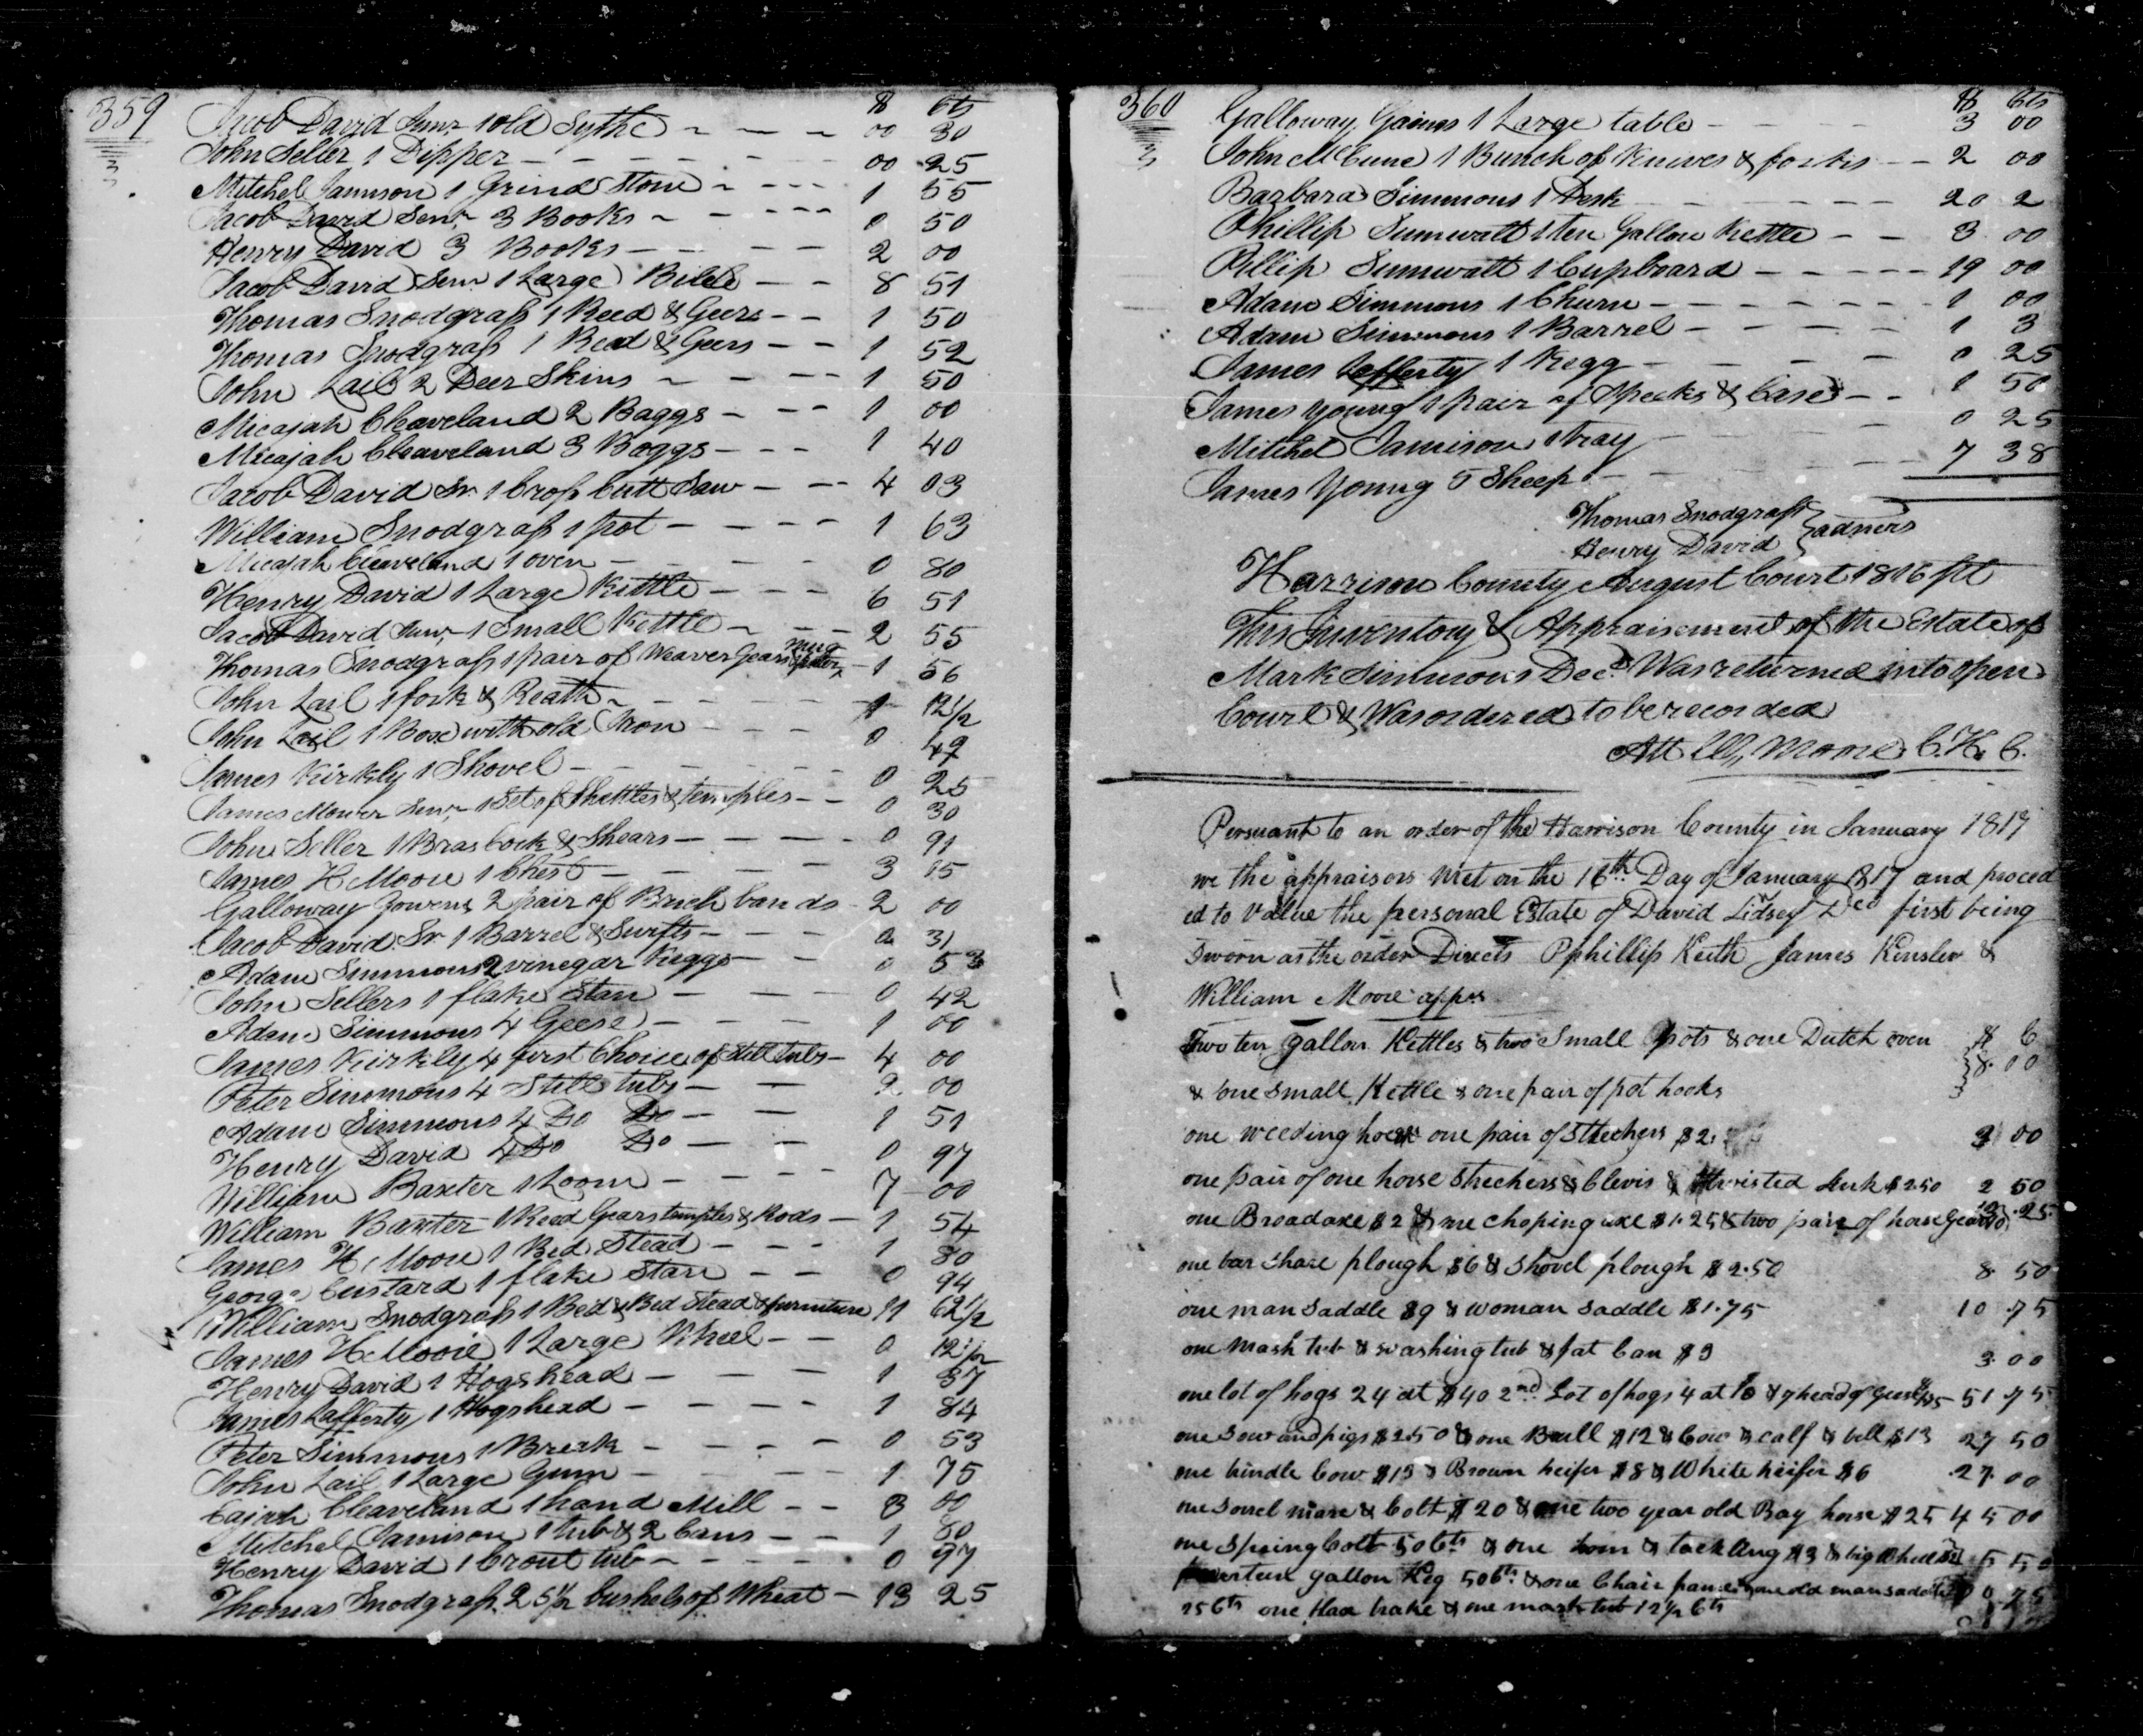 359 $ Cts
Jacob David Junr 1 old Sythe 00 30
John Seller 1 Dipper 00 25
Mitchel Jamison 1 Grind Stone 1 55
Jacob David Senr 3 Books 0 50
Henry David 3 Books 2 00
Jacob David Senr 1 Large Bible 8 51
Thomas Snodgrass 1 Reed & Geers 1 50
Thomas Snodgrass 1 Reed & Geers 1 52
John Lail 2 Deer Skins 1 50
Micajah Cleaveland 2 Baggs 1 00
Micajah Cleaveland 3 Baggs 1 40
Jacob David Sr 1 Cross Cutt Saw 4 03
William Snodgrass 1 pot 1 63
Micajah Cleaveland 1 oven 0 80
Henry David 1 Large Kittle 6 51
Jacob David Junr 1 Small Kittle 2 55
Thomas Snodgrass 1 pair of Weaver Gears mug 1 56
John Lail 1 fork & Reath 1 12 1/2
John Lail 1 Box with old Iron 0 49
James Kirkly 1 Shovel 0 25
James Mower Senr 1 Set of Shettles & temples 0 30
John Seller 1 Bras Cock & Shears 0 91
James H Moore 1 Chest 3 15
Galloway Gowens 2 pair of Brich bands 2 00
Jacob David Sr 1 Barrel & Swifts 2 31
Adam Simmons 2 vinegar Keggs 0 53
John Sellers 1 flake Stan 0 42
Adam Simmons 4 Geese 1 00
James Kirkly 4 first Choice of Still tubs 4 00
Peter Simmons 4 Still tubs 2 00
Adam Simmons 4 Do Do 1 51
Henry David 4 Do Do 0 97
William Baxter 1 Loom 7 00
William Baxter 1 Reed Gears temples & Rods 1 54
James H Moore 1 Bed Stead 1 80
George Custard 1 flake Stan 0 94
William Snodgrass 1 Bed & Bed Stead & furniture 11 62 1/2
James H Moore 1 Large Wheel 0 12 1/2
Henry David 1 Hogshead 1 37
James Lafferty 1 Hogshead 1 84
Peter Simmons 1 Breck 0 53
John Lail 1 Large Gum 1 75
Cajah Cleaveland 1 hand Mill 3 00
Mitchel Jamison 1 tub & 2 Cans 1 80
Henry David 1 Crout tub 0 97
Thomas Snodgrass 25 1/2 bushels of Wheat 13 25
360 $ Cts
Galloway Gaines 1 Large table 3 00
John McCune 1 Bunch of Knives & forks 2 00
Barbara Simmons 1 Desk 20 2
Phillip Sumwatt 1 ten Gallon Kettle 3 00
Pillip Sumwatt 1 Cupboard 19 00
Adam Simmons 1 Churn 1 00
Adam Simmons 1 Barrel 1 3
James Lefferty 1 Kegg 0 25
James Young 1 pair of Specks & Case 1 50
Mitchel Jamison 1 tray 0 25
James Young 5 Sheep 7 38
Thomas Snodgrass
Henry David } admers
Harrison County August Court 1816 Sct
This Inventory & Appraisement of the Estate of
Mark Simmons Decd Was returned into open
Court & Was ordered to be recorded
Att W. Moore C.H.C.
Persuant to an order of the Harrison County in January 1817
we the appraisors met on the 16th Day of January 1817 and proced
ed to Value the personal Estate of David Lidsey Decd first being
Sworn as the order Directs Pphillip Keith James Kinslow &
William Moore apprs
Two ten gallon Kettles & two Small pots & one Dutch oven $ C
& one small Kettle & one pair of pot hooks } 8.00
one weeding hoe & one pair of Strechers $2. 2 00
one pair of one horse Strechers & Clevis & thwisted link $2.50 2 50
one Broad axe $2 & one choping axe $1.25 & two pair of horse Gears 10 13.25
one bar Share plough $6 & Shovel plough $2.50 8 50
one man Saddle $9 & woman Saddle $1.75 10.75
one mash tub & washing tub & fat Can $3 3.00
one lot of hogs 24 at $40 2nd Lot of hogs 4 at 10 & 7 head of Geese $1.75 51.75
one Sow and pigs $2.50 & one Bull $12 & Cow & calf & bell $13 27 50
one brindle Cow $13 & Brown heifer $8 & White heifer $6 .27.00
one Sorrel mare & Colt $20 & one two year old Bay horse $25 45 00
one Spring Colt 50Cts & one loom & tackling $3 & big Wheel $2 5 50
fourteen gallon Keg 50Cts & one Chair frame & one old man saddle 0 75
25Cts one flax brake & one mash tub 12 1/2 Cts